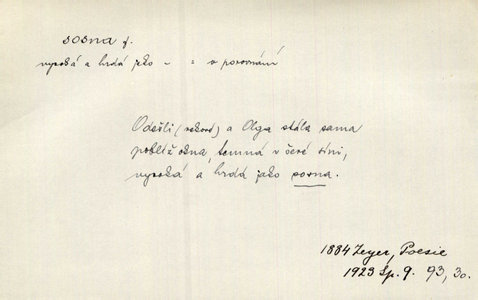 sosna f.
vysoká a hrdá jako - = v porovnání
Odešli (rekové) a Olga stála sama
poblíž okna, temná v šeré síni,
vysoká a hrdá jako sosna.
1884 Zeyer, Poesie
1923 Sp. 9. 93, 30.